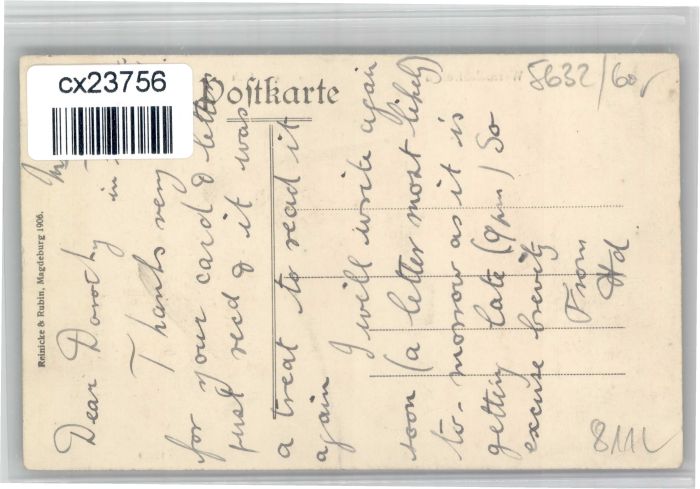 cx23756
Postkarte
5632/60
Reinicke & Rubin, Magdeburg 1906.
Dear Dorothy
in
Thanks very
for your card & letter
just recd & it was
a treat to read it
again
I will write again
soon (a letter most likely)
to-morrow as it is
getting late (9 pm) So
excuse brevity
From
Hd